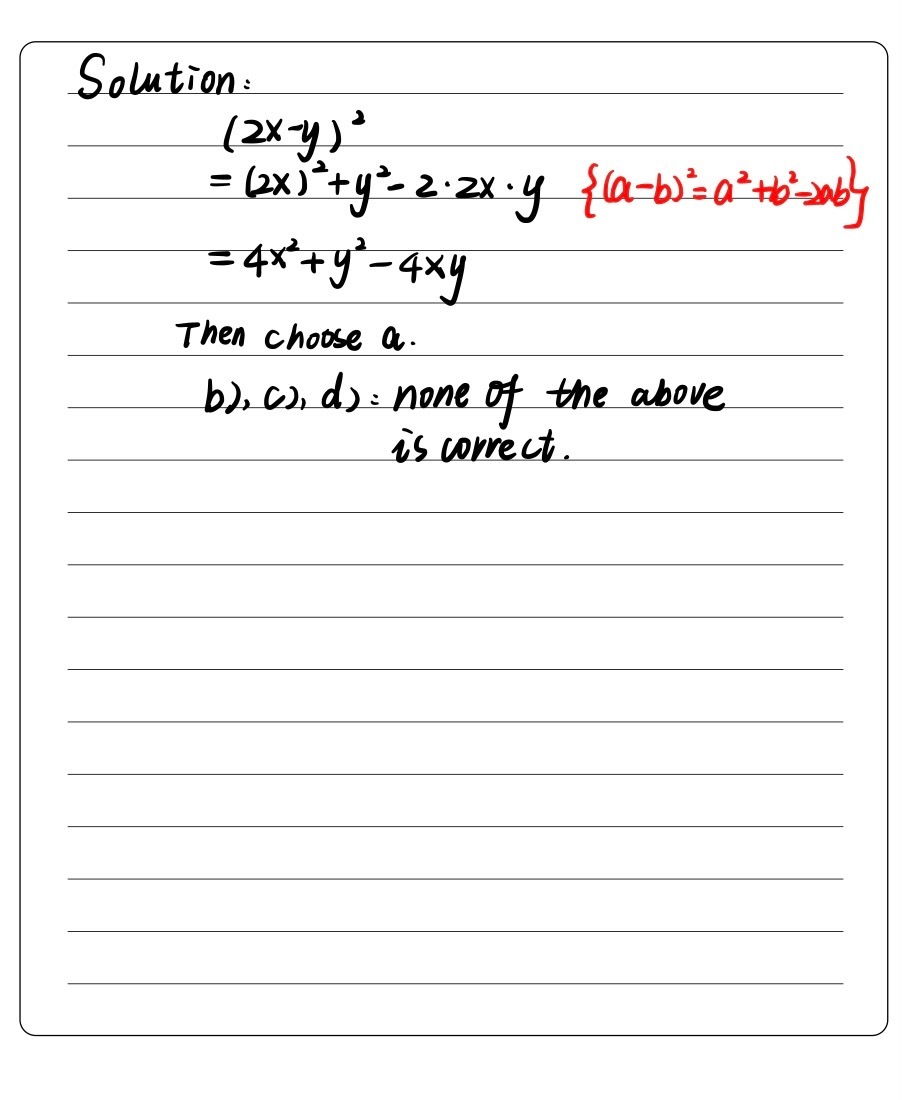 Solution:
(2x-y)²
= (2x)²+y²-2·2x·y {(a-b)²=a²+b²-2ab}
=4x²+y²-4xy
Then choose a.
b), c), d): none of the above
is correct.